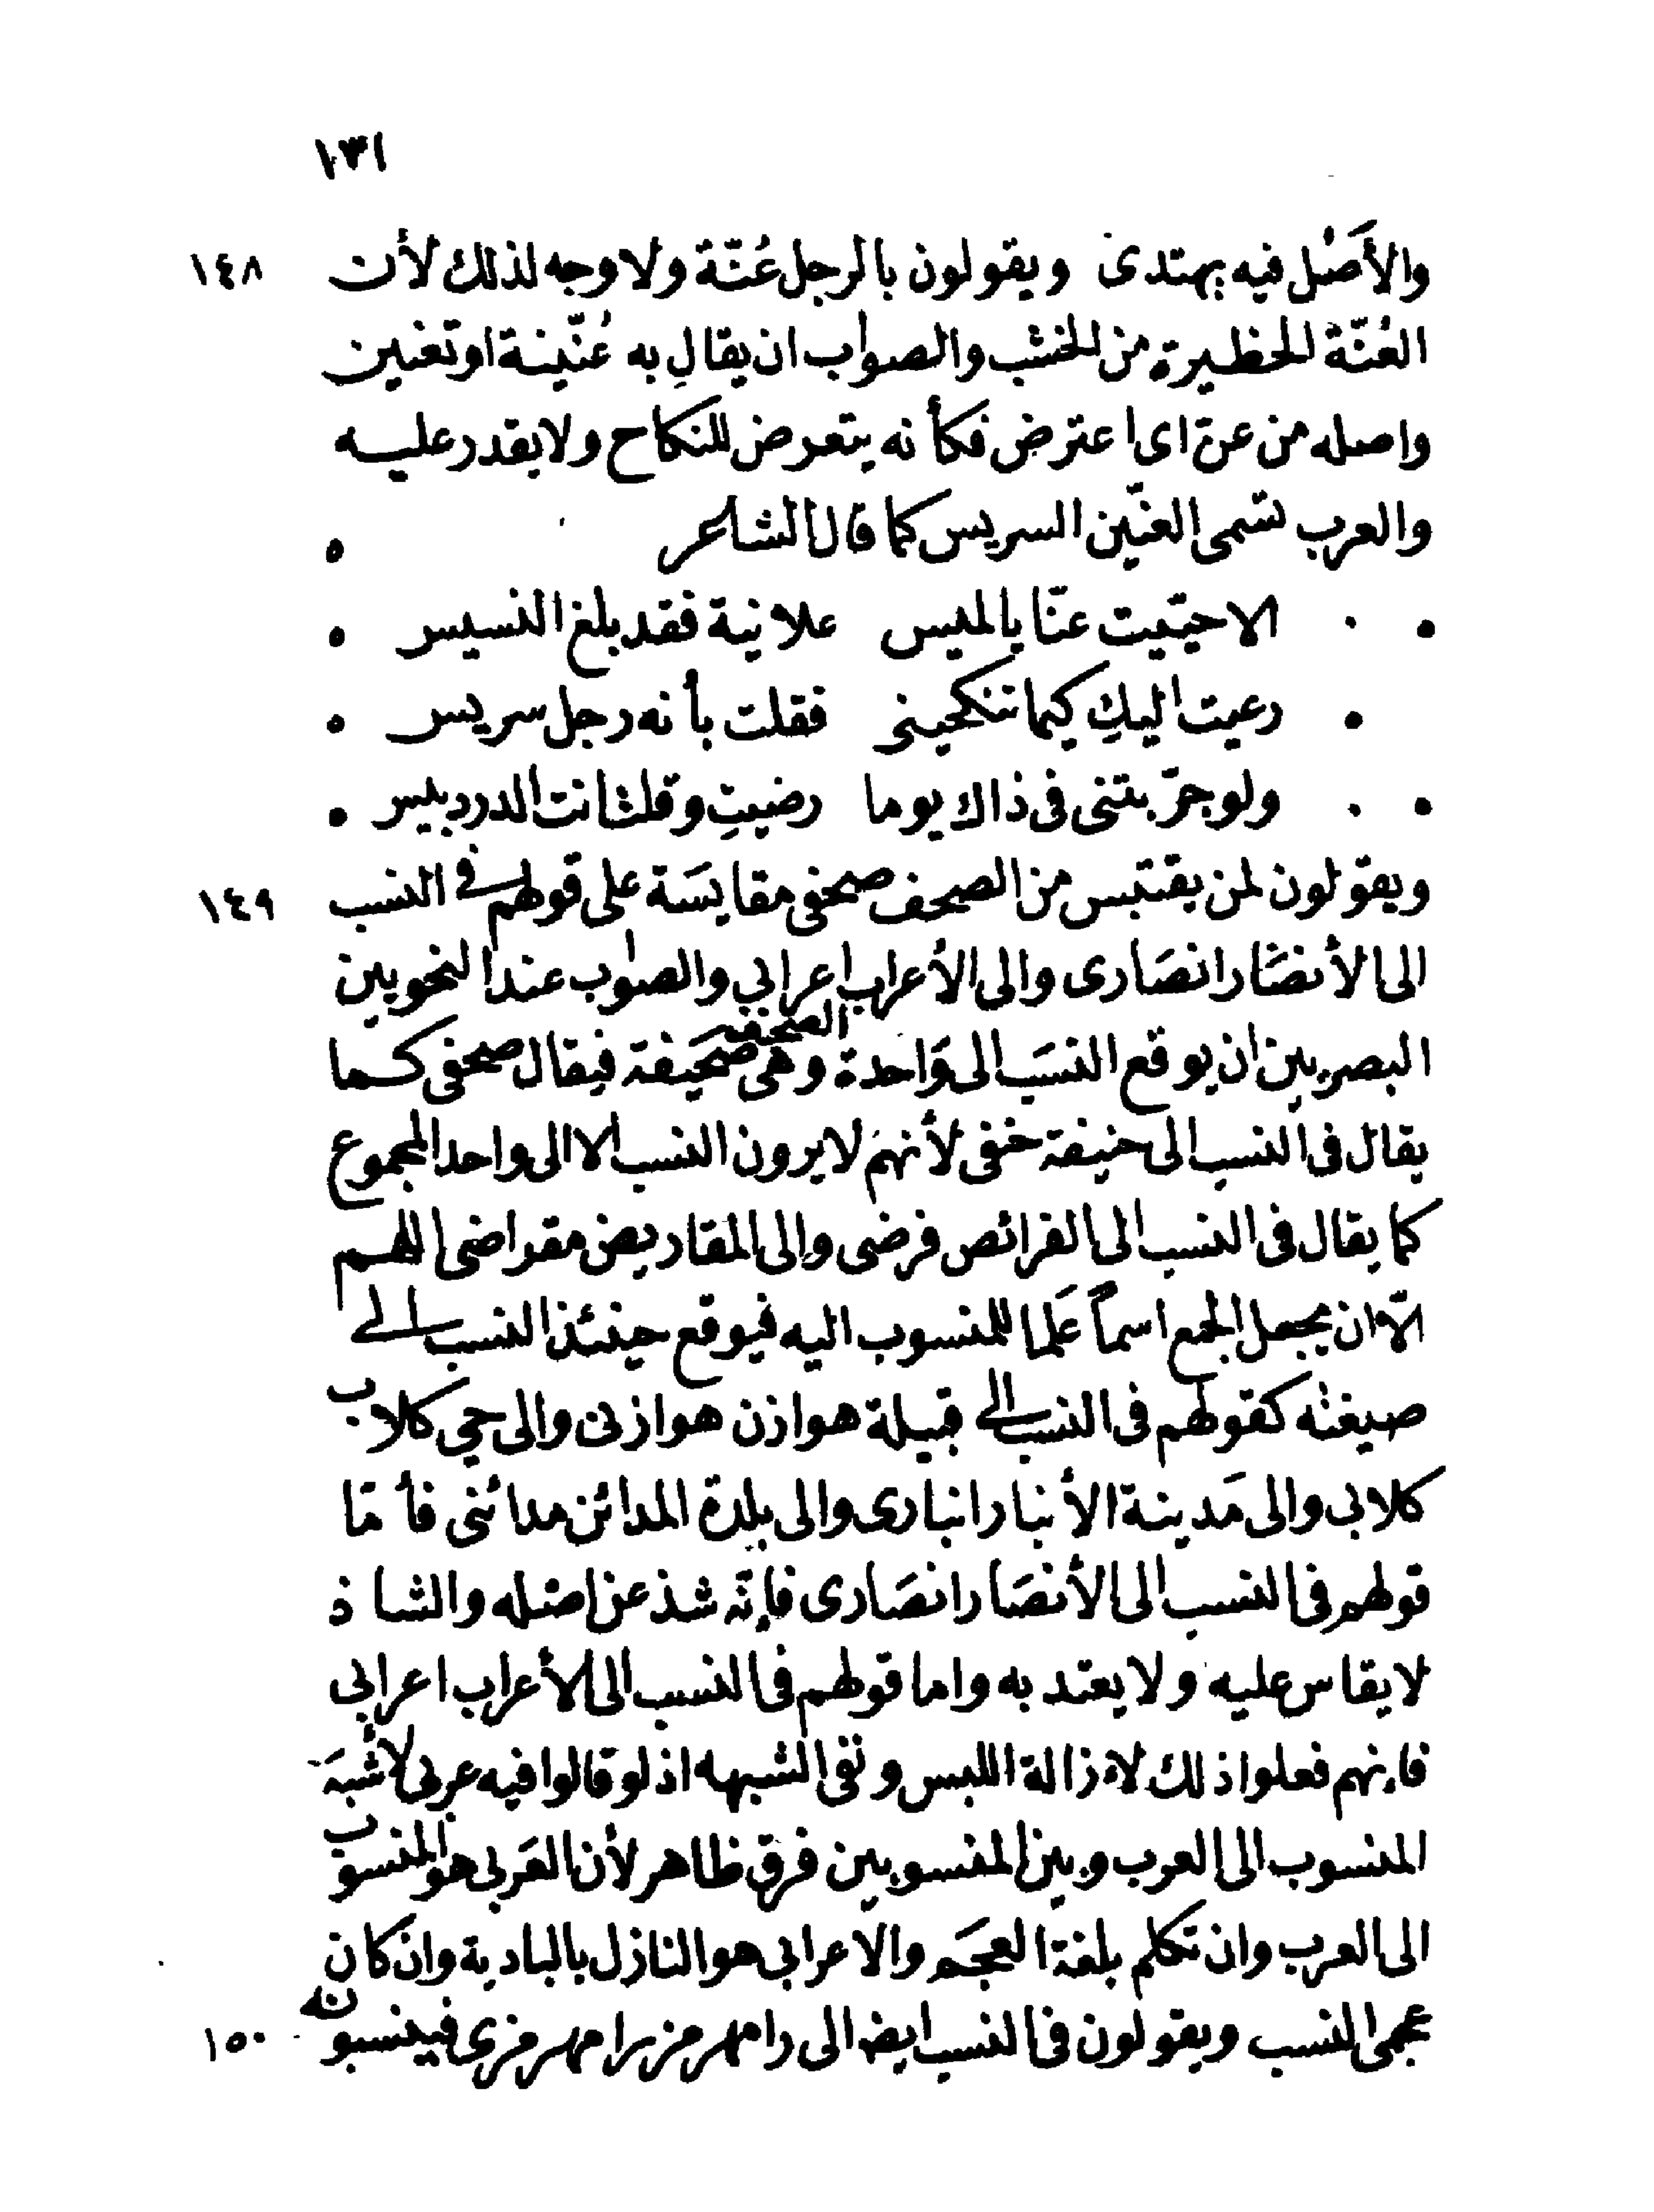 ١٣١
والأَصْل فيه يهتدى ويقولون بالرجل عُنّة ولا وجه لذلك لأن ١٤٨
العُنّة الحظيرة من الخشب والصواب ان يقال به عُنّينة او تعنين
واصله من عن اى اعترض فكأنه يتعرض للنكاح ولا يقدر عليه
والعرب تسمى العنّين السريس كما قال الشاعر ٥
الا حيّيت عنّا يا لميس علانية فقد بلغ النسيس
رعيت اليكِ كيما تنكحينى فقلت بأنه رجل سريس
ولو جرّبتنى فى ذاك يوما رضيتِ وقلت انت الدردبيس
ويقولون لمن يقتبس من الصحف صحفى مقايسَة على قولهم فى النسب ١٤٩
الى الأنصَار انصَارى والى الأعراب اعرابي والصواب عند النحويين
البصريين ان يوقع النسَب الى وَاحدة الصحف وهى صَحيفة فيقال صحفى كما
يقال فى النسب الى حنيفة حنفى لأنهم لا يرون النسب الا الى واحد المجموع
كما يقال فى النسب الى الفرائص فرضى والى المقاريض مقراضى اللهم
الّا ان يجعل الجمع اسماً عَلما للمنسوب اليه فيوقع حينئذ النسب الى
صيغته كقولهم فى النسب الى قبيلة هوازن هوازنى والى حي كلاب
كلابى والى مَدينة الأنبار انبارى والى بلدة المدائن مدائنى فأمّا
قولهم فى النسب الى الأنصَار انصَارى فإنّه شذ عن اصله والشاذ
لا يقاس عليه ولا يعتد به واما قولهم فى النسب الى الأعراب اعرابى
فإنهم فعلوا ذلك لإزالة اللبس ونفى الشبهه اذ لو قالوا فيه عربى لأشبَه
المنسوب الى العرب وبين المنسوبين فرق ظاهر لأن العَربى هو المنسوب
الى العرب وان تكلم بلغة العجَم والاعرابى هو النازل بالبادية وان كان
عجمى النسب ويقولون فى النسب ايضا الى رامهرمز رامهرمزى فينسبونه ١٥٠